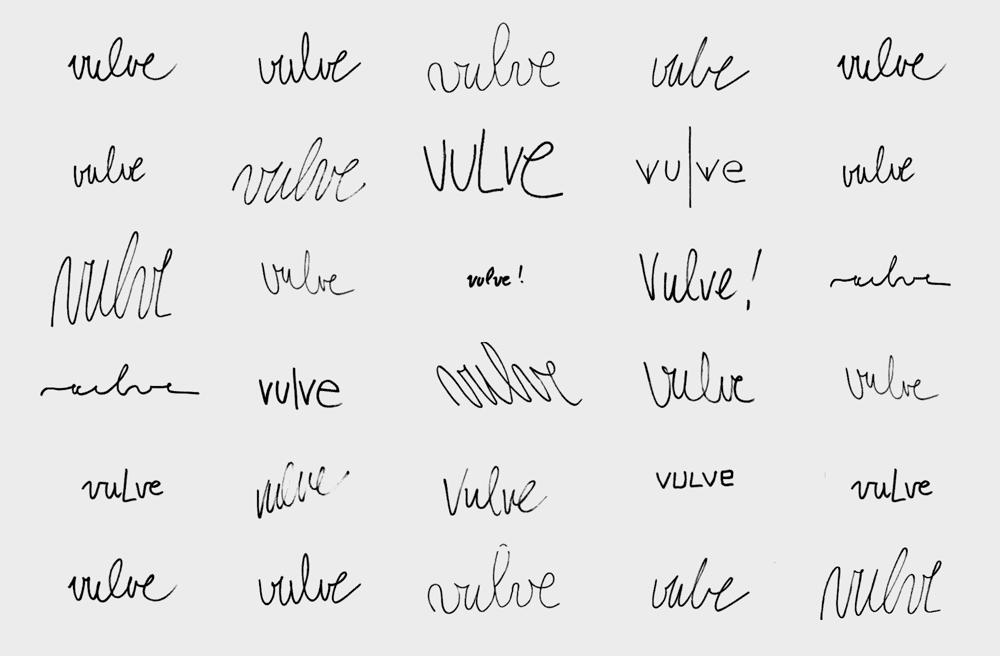 vulve vulve vulve vulve vulve
vulve vulve VULVE vulve vulve
vulve vulve vulve! Vulve! vulve
vulve vulve vulve vulve vulve
vuLve vulve Vulve VULVE vuLve
vulve vulve vulve vulve vulve